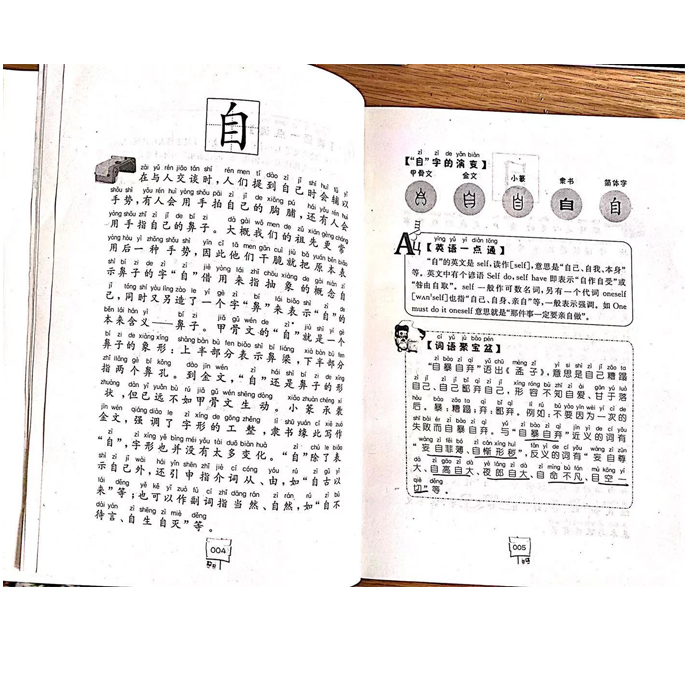 自
在与人交谈时，人们提到自己时会辅以
手势，有人会用手拍自己的胸脯，还有人会
用手指自己的鼻子。大概我们的祖先更常
用后一种手势，因此他们干脆就把原本表
示鼻子的字“自”借用来指抽象的概念自
己，同时又另造了一个字“鼻”来表示“自”的
本来含义——鼻子。甲骨文的“自”就是一个
鼻子的象形：上半部分表示鼻梁，下半部分
指两个鼻孔。到金文，“自”还是鼻子的形
状，但已远不如甲骨文生动。小篆承袭
金文，强调了字形的工整，隶书缘此写作
“自”，字形也并没有太多变化。“自”除了表
示自己外，还引申指介词从、由，如“自古以
来”等；也可以作副词指当然、自然，如“自不
待言、自生自灭”等。
004
【“自”字的演变】
甲骨文 金文 小篆 隶书 简体字
【英语一点通】
“自”的英文是 self，读作[self]，意思是“自己、自我、本身”
等。英文中有个谚语 Self do, self have 即表示“自作自受”或
“咎由自取”。self 一般作可数名词，另有一个代词 oneself
[wʌn'self]也指“自己、自身、亲自”等，一般表示强调。如 One
must do it oneself 意思就是“那件事一定要亲自做”。
【词语聚宝盆】
“自暴自弃”语出《孟子》，意思是自己糟蹋
自己、自己鄙弃自己，形容不知自爱、甘于落
后。暴：糟蹋；弃：鄙弃。例如：不要因为一次的
失败而自暴自弃。与“自暴自弃”近义的词有
“妄自菲薄、自惭形秽”，反义的词有“妄自尊
大、自高自大、夜郎自大、自命不凡、目空一
切”等。
005